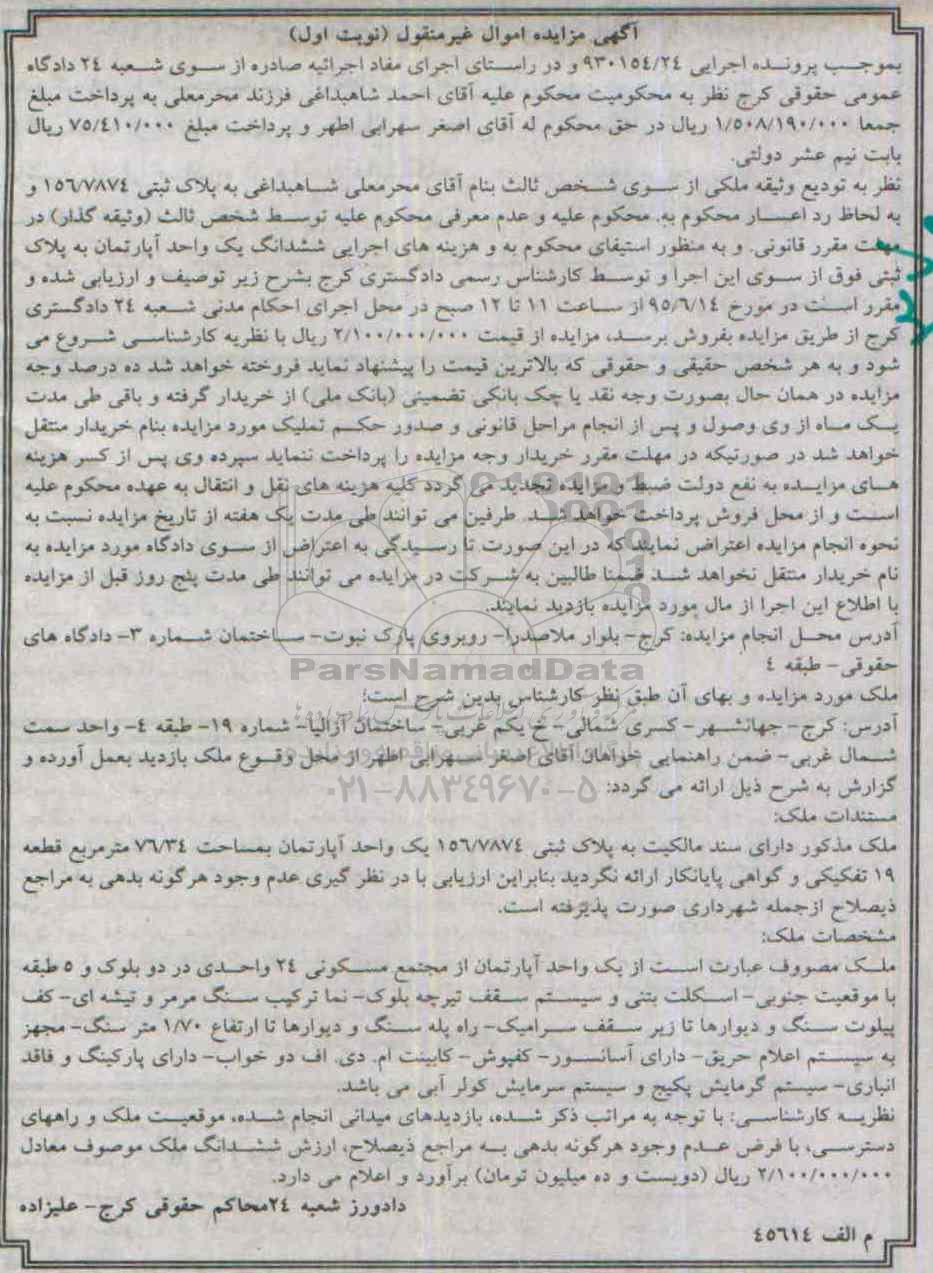 آگهی مزایده اموال غیرمنقول (نوبت اول)
بموجب پرونده اجرایی ۹۳۰۱۵٤/۲٤ و در راستای اجرای مفاد اجرائیه صادره از سوی شعبه ۲٤ دادگاه
عمومی حقوقی کرج نظر به محکومیت محکوم علیه آقای احمد شاهبداغی فرزند محرمعلی به پرداخت مبلغ
جمعا ۱/۵۰۸/۱۹۰/۰۰۰ ریال در حق محکوم له آقای اصغر سهرابی اطهر و پرداخت مبلغ ۷۵/٤۱۰/۰۰۰ ریال
بابت نیم عشر دولتی.
نظر به تودیع وثیقه ملکی از سوی شخص ثالث بنام آقای محرمعلی شاهبداغی به پلاک ثبتی ۱۵٦/۷۸۷٤ و
به لحاظ رد اعسار محکوم به. محکوم علیه و عدم معرفی محکوم علیه توسط شخص ثالث (وثیقه گذار) در
مهلت مقرر قانونی. و به منظور استیفای محکوم به و هزینه های اجرایی ششدانگ یک واحد آپارتمان به پلاک
ثبتی فوق از سوی این اجرا و توسط کارشناس رسمی دادگستری کرج بشرح زیر توصیف و ارزیابی شده و
مقرر است در مورخ ۹۵/٦/۱٤ از ساعت ۱۱ تا ۱۲ صبح در محل اجرای احکام مدنی شعبه ۲٤ دادگستری
کرج از طریق مزایده بفروش برسد، مزایده از قیمت ۲/۱۰۰/۰۰۰/۰۰۰ ریال با نظریه کارشناسی شروع می
شود و به هر شخص حقیقی و حقوقی که بالاترین قیمت را پیشنهاد نماید فروخته خواهد شد ده درصد وجه
مزایده در همان حال بصورت وجه نقد یا چک بانکی تضمینی (بانک ملی) از خریدار گرفته و باقی طی مدت
یک ماه از وی وصول و پس از انجام مراحل قانونی و صدور حکم تملیک مورد مزایده بنام خریدار منتقل
خواهد شد در صورتیکه در مهلت مقرر خریدار وجه مزایده را پرداخت ننماید سپرده وی پس از کسر هزینه
های مزایده به نفع دولت ضبط و مزایده تجدید می گردد کلیه هزینه های نقل و انتقال به عهده محکوم علیه
است و از محل فروش پرداخت خواهد شد. طرفین می توانند طی مدت یک هفته از تاریخ مزایده نسبت به
نحوه انجام مزایده اعتراض نمایند که در این صورت تا رسیدگی به اعتراض از سوی دادگاه مورد مزایده به
نام خریدار منتقل نخواهد شد ضمنا طالبین به شرکت در مزایده می توانند طی مدت پنج روز قبل از مزایده
با اطلاع این اجرا از مال مورد مزایده بازدید نمایند.
آدرس محل انجام مزایده: کرج- بلوار ملاصدرا- روبروی پارک نبوت- ساختمان شماره ۳- دادگاه های
حقوقی- طبقه ٤
ParsNamadData
ملک مورد مزایده و بهای آن طبق نظر کارشناس بدین شرح است:
آدرس: کرج- جهانشهر- کسری شمالی- خ یکم غربی- ساختمان آزالیا- شماره ۱۹- طبقه ٤- واحد سمت
شمال غربی- ضمن راهنمایی خواهان آقای اصغر سهرابی اطهر از محل وقوع ملک بازدید بعمل آورده و
گزارش به شرح ذیل ارائه می گردد:
۰۲۱-۸۸۳٤۹٦۷۰-۵
مستندات ملک:
ملک مذکور دارای سند مالکیت به پلاک ثبتی ۱۵٦/۷۸۷٤ یک واحد آپارتمان بمساحت ۷٦/۳٤ مترمربع قطعه
۱۹ تفکیکی و گواهی پایانکار ارائه نگردید بنابراین ارزیابی با در نظر گیری عدم وجود هرگونه بدهی به مراجع
ذیصلاح ازجمله شهرداری صورت پذیرفته است.
مشخصات ملک:
ملک مصووف عبارت است از یک واحد آپارتمان از مجتمع مسکونی ۲٤ واحدی در دو بلوک و ۵ طبقه
با موقعیت جنوبی- اسکلت بتنی و سیستم سقف تیرچه بلوک- نما ترکیب سنگ مرمر و تیشه ای- کف
پیلوت سنگ و دیوارها تا زیر سقف سرامیک- راه پله سنگ و دیوارها تا ارتفاع ۱/۷۰ متر سنگ- مجهز
به سیستم اعلام حریق- دارای آسانسور- کفپوش- کابینت ام. دی. اف دو خواب- دارای پارکینگ و فاقد
انباری- سیستم گرمایش پکیج و سیستم سرمایش کولر آبی می باشد.
نظریه کارشناسی: با توجه به مراتب ذکر شده، بازدیدهای میدانی انجام شده، موقعیت ملک و راههای
دسترسی، با فرض عدم وجود هرگونه بدهی به مراجع ذیصلاح، ارزش ششدانگ ملک موصوف معادل
۲/۱۰۰/۰۰۰/۰۰۰ ریال (دویست و ده میلیون تومان) برآورد و اعلام می دارد.
دادورز شعبه ۲٤محاکم حقوقی کرج- علیزاده
م الف ٤۵٦۱٤